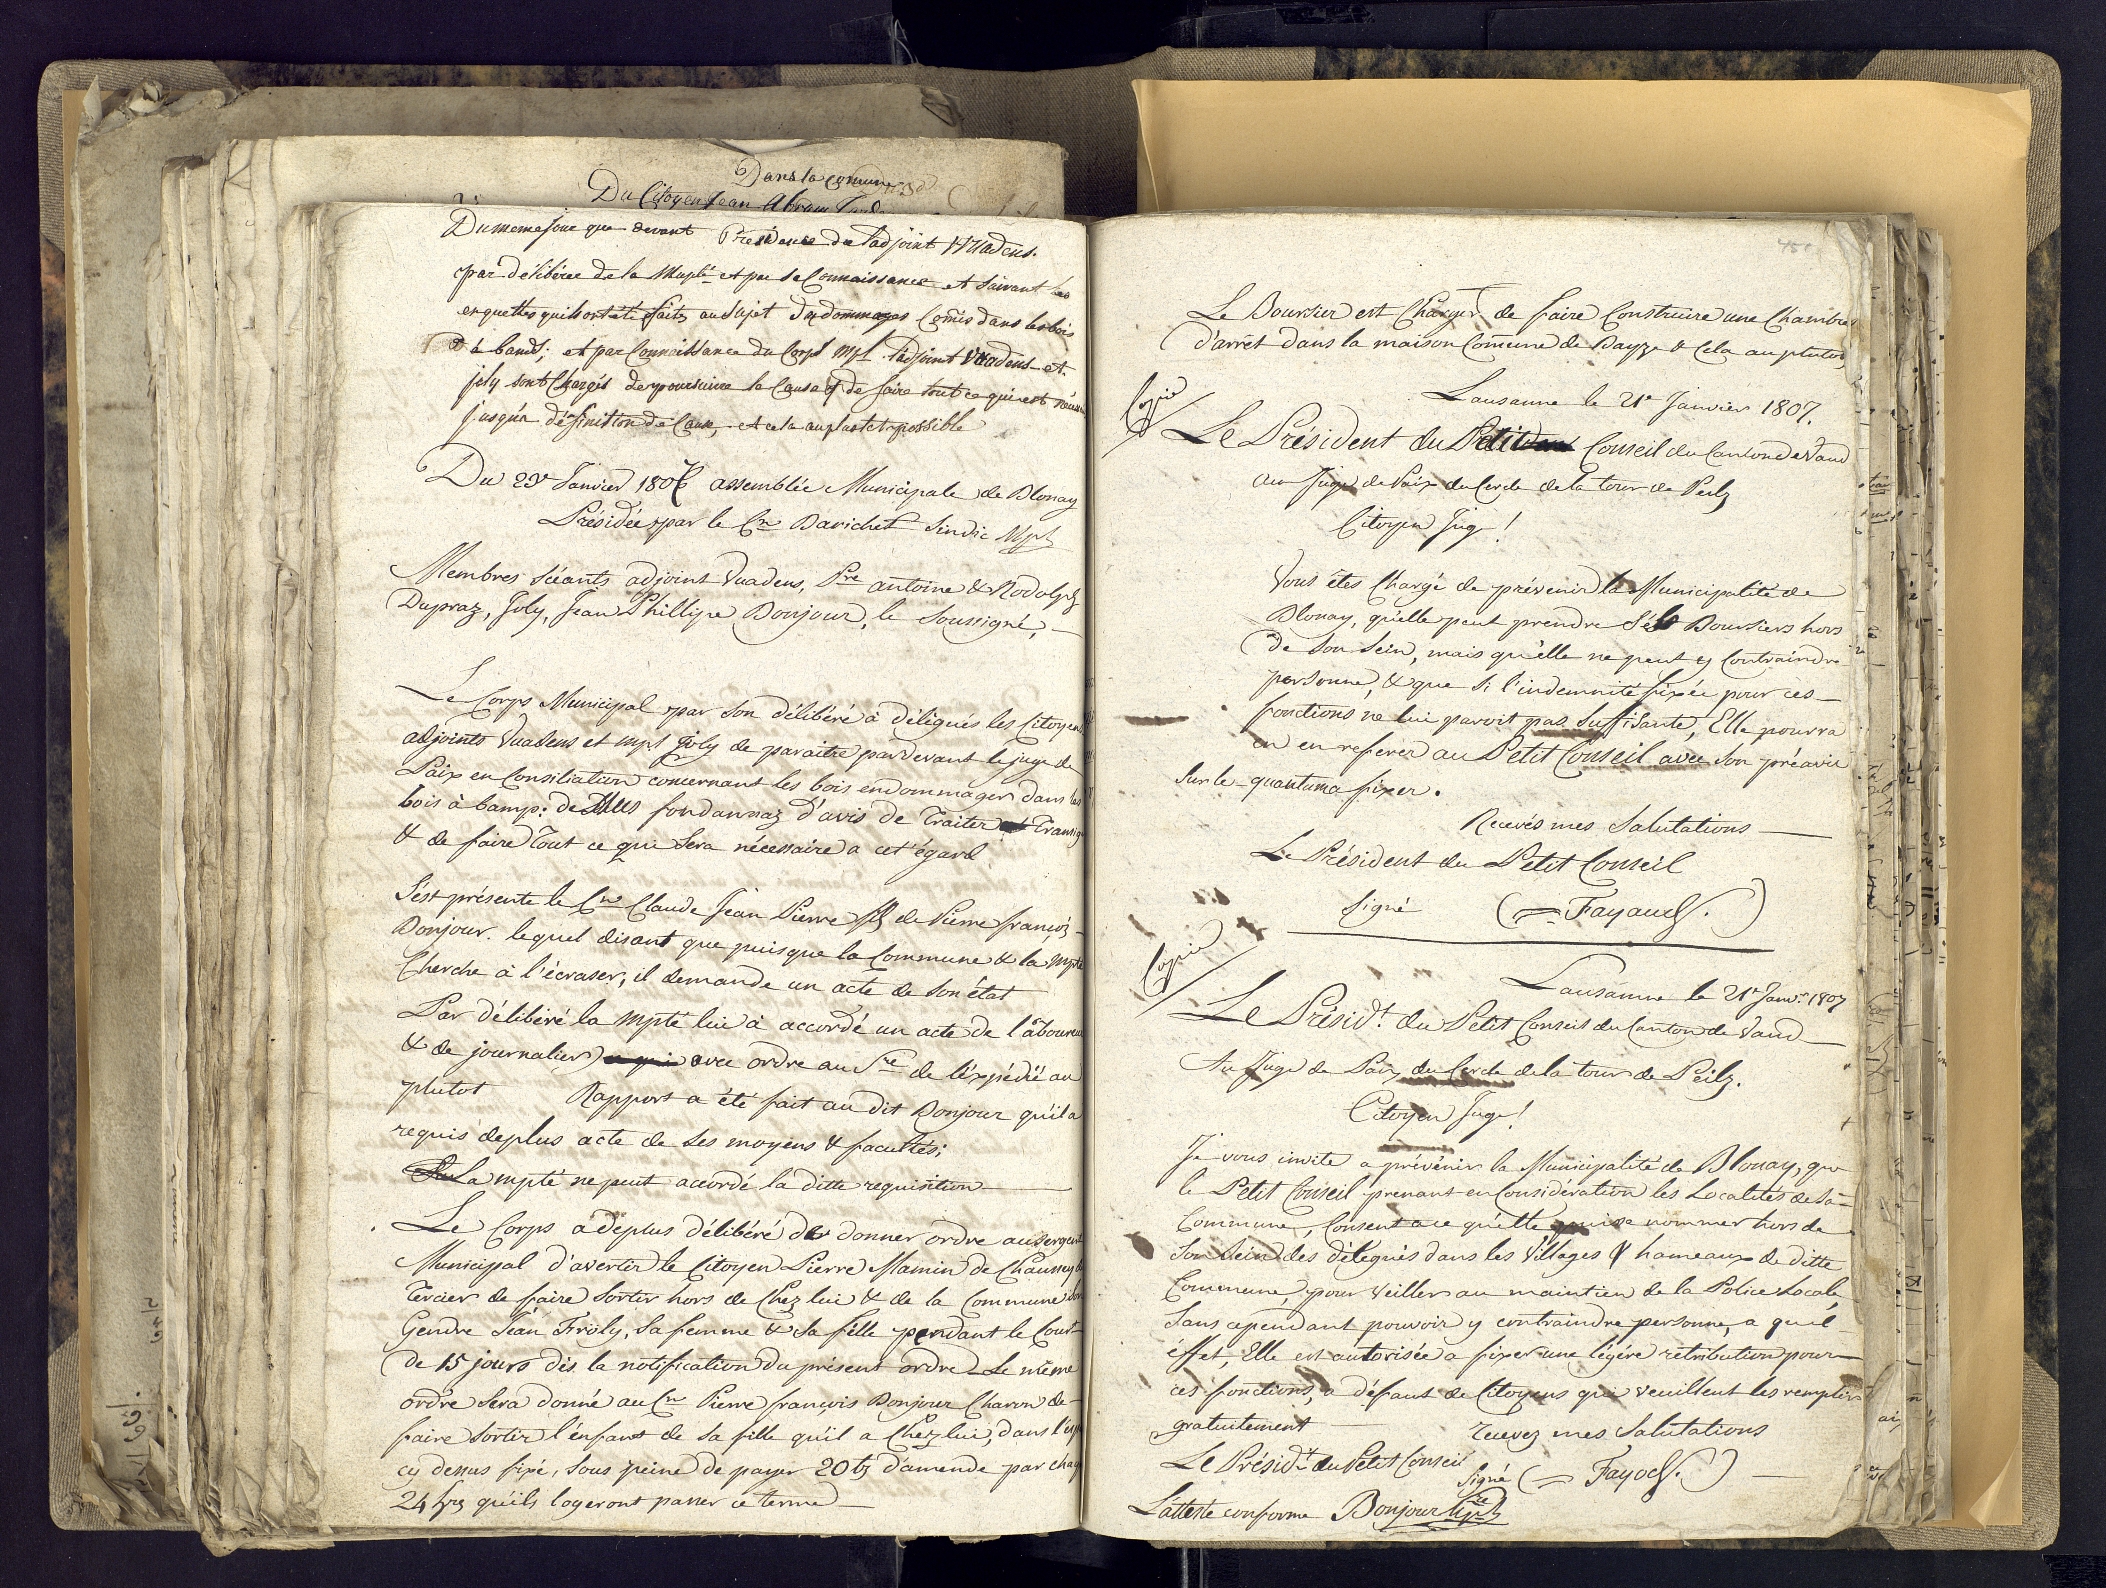 Dans la comune
Du Citoyen Jean Abram
Du meme jour que devant Présidence de l'adjoint Vuadens.
par délibérée de la Mupté et par sa Connaissance et Suivant les
enquettes quils ont été faits au Sujet des dommages Comis dans les bois
à bamp; et par Connaissance du Corps Mpl l'adjoint Vuadens et
joly sont Chargés de poursuivre la Cause & de faire tout ce qui est
jusqu'a définition de Cause, et cela au plustot possible
Du 23e Janvier 1807 assemblée Municipale de Blonay
Présidée par le Cn Barichet Sindic Mpl
Membres séants adjoint Vuadens, Pre antoine & Rodolph
Dupraz, Joly, Jean Phillipe Bonjour, le Soussigné,
Le Corps Municipal par son délibéré à délégués les Citoyens
adjoints Vuadens et mpl Joly de paraitre pardevant le juge de
Paix en Consiliation concernant les bois endommager dans les
bois à bamp: de fondannaz d'avis de Traiter
& de faire Tout ce qui Sera nécessaire a cet égard
S'est présente le Cn Claude Jean Pierre fils de Pierre françois
Bonjour. lequel disant que puisque la Commune & la Mpté
Cherche à l'écraser, il demande un acte de son état
Par délibéré la mpté lui à accordé un acte de laboureur
& de journalier avec ordre au Sre de l'éxpédié au
plutot Rapport a été fait au dit Bonjour qu'il a
requis deplus acte de ses moyens & facultés;
La mpté ne peut accordé la ditte requisition
Le Corps a deplus délibéré de donner ordre au sergent
Municipal d'avertir le Citoyen Pierre Mamin de Chaussey
Tercier de faire Sortir hors de Chez lui & de la Commune son
Gendre Jean Fröly, Sa femme & Sa fille pendant le Court
de 15 jours dès la notification du présent ordre Le même
ordre Sera donné au Cn Pierre françois Bonjour Charon de
faire Sortir l'enfant de Sa fille qu'il a Chez lui, dans l'
cy dessus fixé, Sous peine de payer 20 bz d'amende par chaq
24 hrs qu'ils logeront passer ce terme
Le Boursier est Charger de faire Construire une Chambre
d'arrèt dans la maison Comune de Bayze & Cela au plutot,
Copie
Lausanne le 21e Janvier 1807.
Le Président du Petit Conseil du Canton de Vaud
au Juge de Paix du Cercle de la tour de Peilz
Citoyen Juge!
Vous êtes Chargé de prévenir la Municipalité de
Blonay, qu'elle peut prendre Ses Boursiers hors
de Son Sein, mais qu'elle ne peut y Contraindre
personne, & que Si l'indemnité fixée pour ces
fonctions ne lui paroit pas Suffisante, Elle pourra
en en referer au Petit Conseil avec Son préavis
Sur le quantum a fixer.
Recevés mes Salutations
Le Président du Petit Conseil
Signé (= Fayoud.)
Copie
Lausanne le 21e Janv. 1807
Le Présidt. du Petit Conseil du Canton de Vaud
Au Juge de Paix du Cercle de la tour de Peilz.
Citoyen Juge!
Je vous invite a prévénir la Municipalité de Blonay, que
le Petit Conseil prenant en Considération les Localités de Sa
Commune, Consent a ce qu'elle puisse nommer hors de
Son Sein des délegués dans les Villages & hameaux de ditte
Commune, pour veiller au maintien de la Police Locale
Sans cependant pouvoir y contraindre personne, a quel
éffet, Elle est autorisée a fixer une légère rétribution pour
ces fonctions, a défaut de Citoyens qui veuillent les remplir
gratuitement Recevez mes Salutations
Le Présidt. du Petit Conseil
Signé (= Fayod.)
L'atteste conforme Bonjour Sre